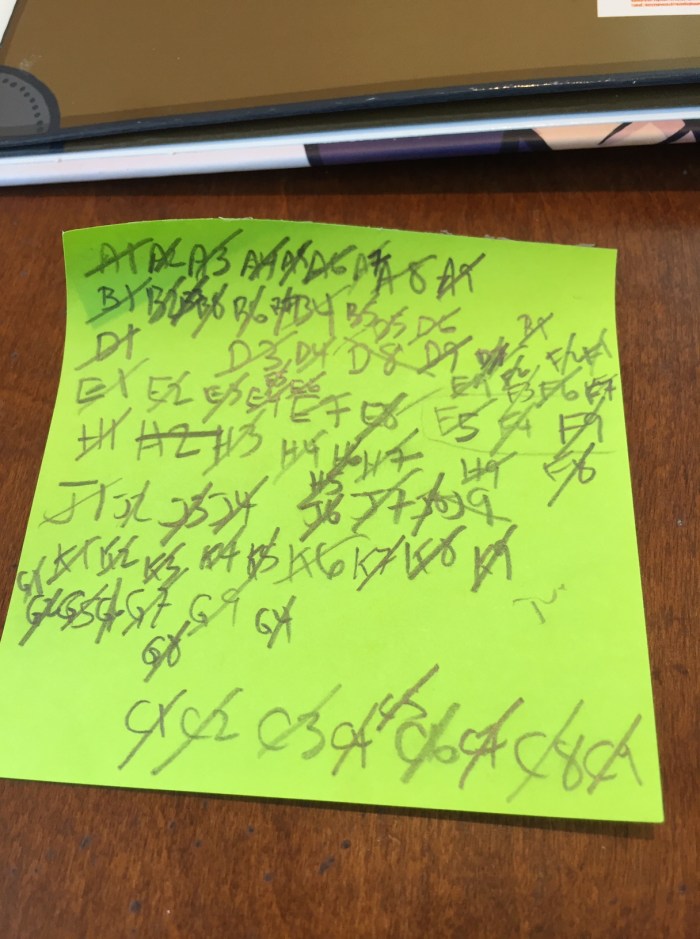 A1 A2 A3 A4 A5 A6 A7 A8 A9
B1 B2 B8 B6 B4 B5 D5 D6
D1 D3 D4 D8 D9
E1 E2 E3 E4 E6 E7 E8
F3 F6 F7
F5 F4 F9
F8
H1 H2 H3 H4 H6 H7 H9
H5
J1 J2 J3 J4 J6 J7 J8 J9
K1 K2 K3 K4 K5 K6 K7 K8 K9
G1
G5 G6 G7 G9
G8
C1 C2 C3 C4 C5 C6 C7 C8 C9